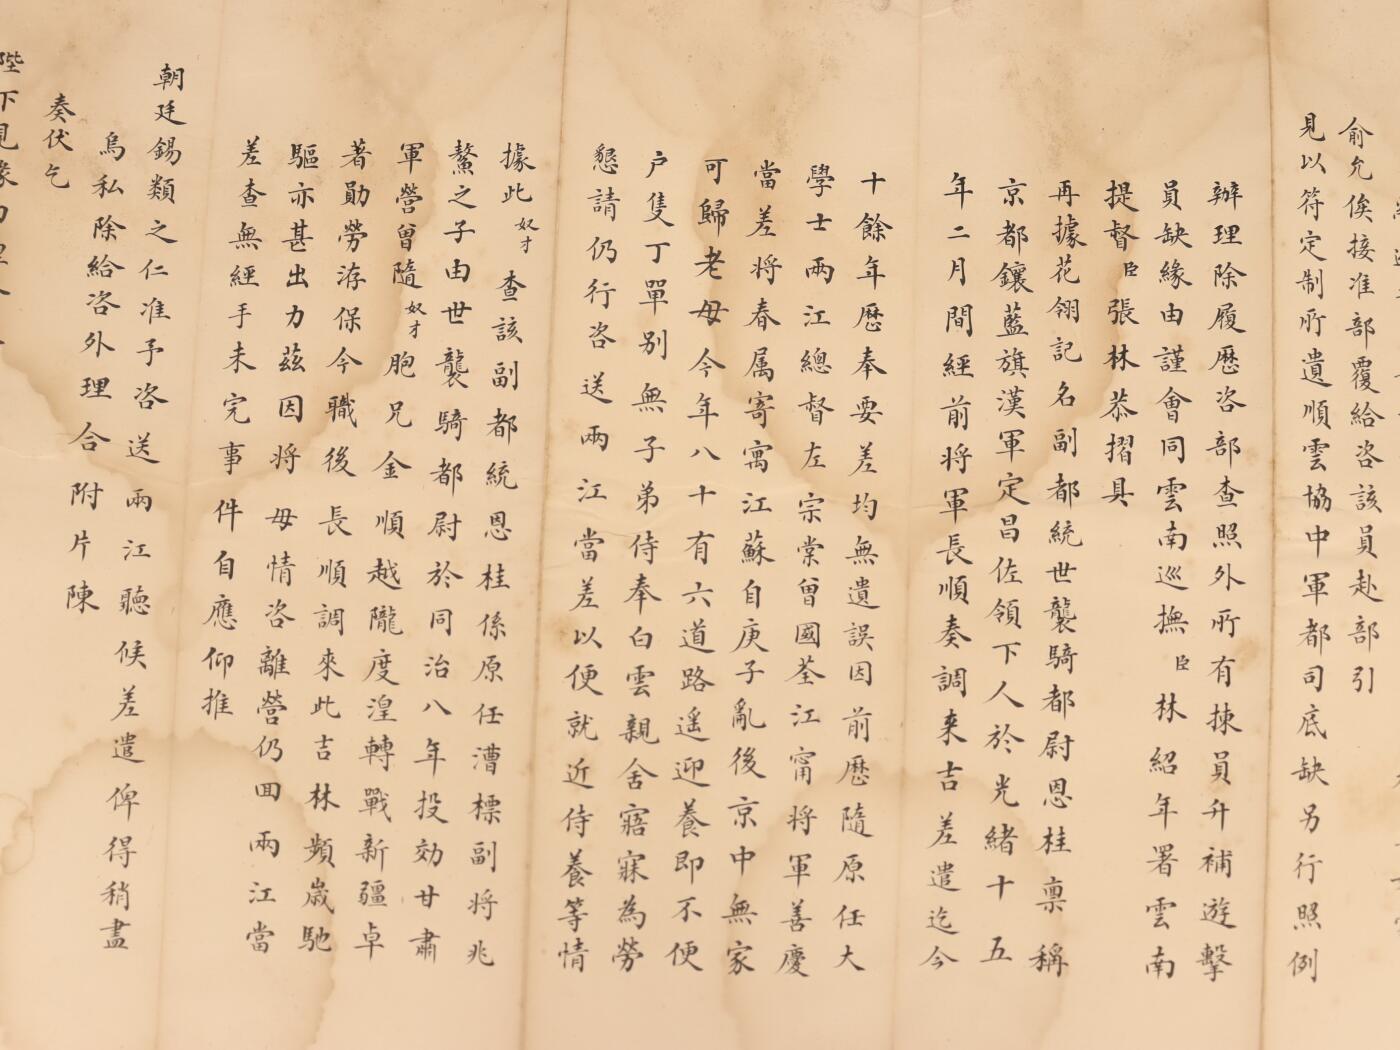 俞允俟接准部覆給咨該員赴部引
見以符定制所遺順雲協中軍都司底缺另行照例
辦理除履歷咨部查照外所有揀員升補遊擊
員缺緣由謹會同雲南巡撫臣林紹年署雲南
提督臣張林恭摺具
再據花翎記名副都統世襲騎都尉恩桂稟稱
京都鑲藍旗漢軍定昌佐領下人於光緒十五
年二月間經前將軍長順奏調來吉差遣迄今
十餘年歷奉要差均無遺誤因前歷隨原任大
學士兩江總督左宗棠曾國荃江甯將軍善慶
當差將春属寄寓江蘇自庚子亂後京中無家
可歸老母今年八十有六道路遙迎養即不便
户隻丁單别無子弟侍奉白雲親舍寤寐為勞
懇請仍行咨送兩江當差以便就近侍養等情
據此奴才查該副都統恩桂係原任漕標副將兆
鰲之子由世襲騎都尉於同治八年投効甘肅
軍營曾隨奴才胞兄金順越隴度湟轉戰新疆卓
著勛勞洊保今職後長順調來此吉林頻歲馳
驅亦甚出力茲因將母情咨離營仍回兩江當
差查無經手未完事件自應仰推
朝廷錫類之仁准予咨送兩江聽候差遣俾得稍盡
烏私除給咨外理合附片陳
奏伏乞
陛下見